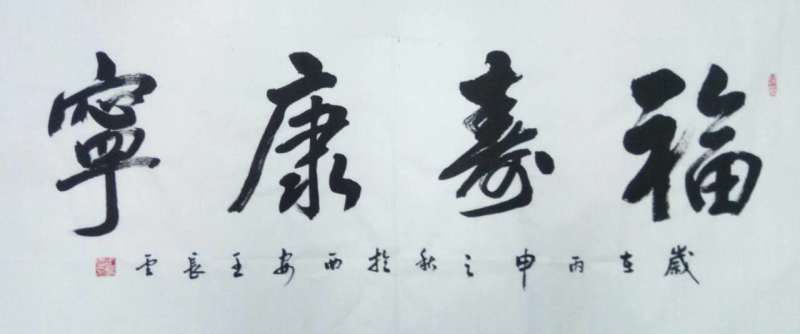 福壽康寧
歲在丙申之秋於西安王長雲